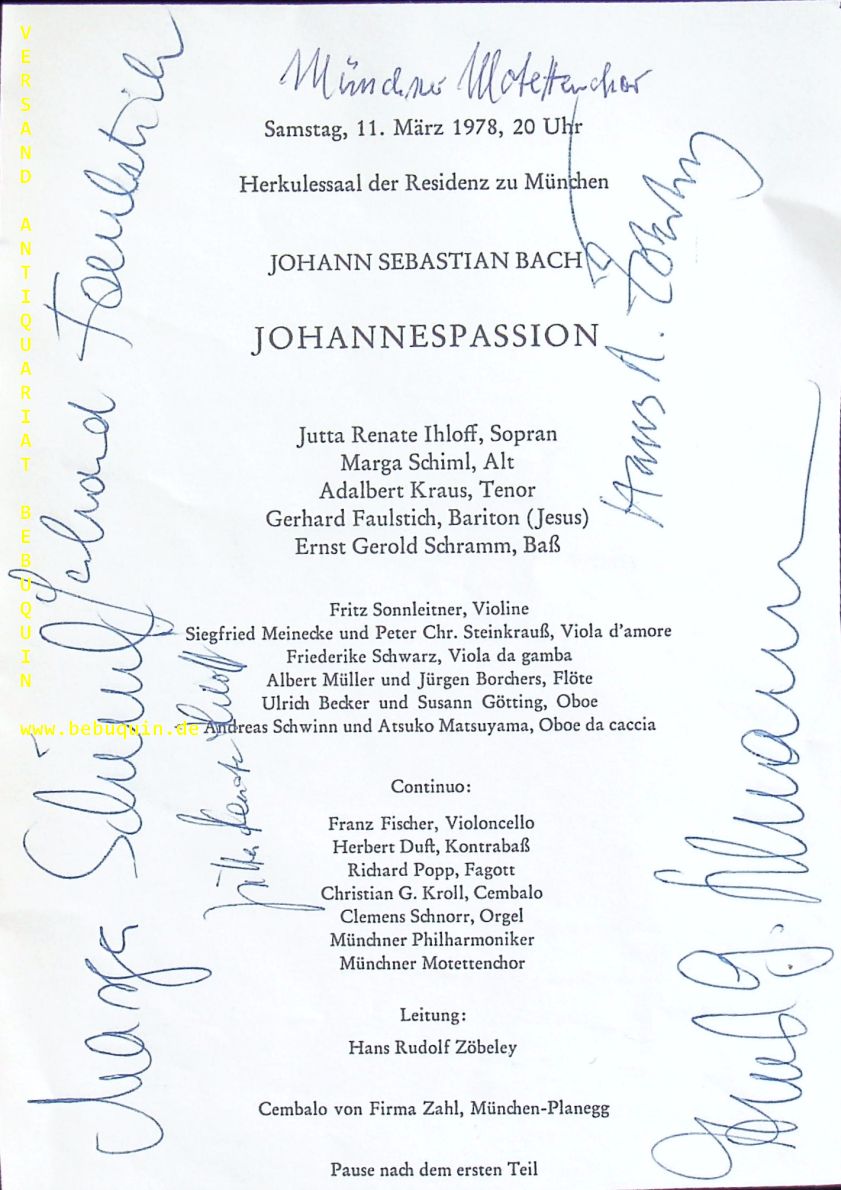 Münchner Motettenchor
Samstag, 11. März 1978, 20 Uhr
Herkulessaal der Residenz zu München
JOHANN SEBASTIAN BACH
JOHANNESPASSION
Jutta Renate Ihloff, Sopran
Marga Schiml, Alt
Adalbert Kraus, Tenor
Gerhard Faulstich, Bariton (Jesus)
Ernst Gerold Schramm, Baß
Fritz Sonnleitner, Violine
Siegfried Meinecke und Peter Chr. Steinkrauß, Viola d'amore
Friederike Schwarz, Viola da gamba
Albert Müller und Jürgen Borchers, Flöte
Ulrich Becker und Susann Götting, Oboe
Andreas Schwinn und Atsuko Matsuyama, Oboe da caccia
Continuo:
Franz Fischer, Violoncello
Herbert Duft, Kontrabaß
Richard Popp, Fagott
Christian G. Kroll, Cembalo
Clemens Schnorr, Orgel
Münchner Philharmoniker
Münchner Motettenchor
Leitung:
Hans Rudolf Zöbeley
Cembalo von Firma Zahl, München-Planegg
Pause nach dem ersten Teil
Gerhard Faulstich
Marga Schiml
Jutta Renate Ihloff
Hans R. Zöbeley
Ernst G. Schramm
VERSAND ANTIQUARIAT BEBUQUIN
www.bebuquin.de